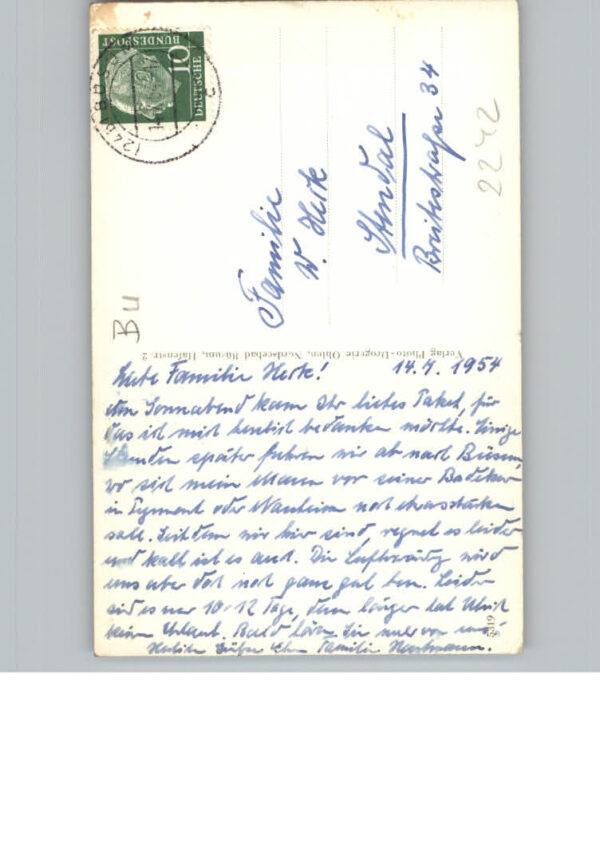 DEUTSCHE
BUNDESPOST
10
Familie
W. Herk
Stendal
Breitestraße 34
2242
Bu
Verlag Photo-Drogerie Ohlen, Nordseebad Büsum, Hafenstr. 2
14.4.1954
Liebe Familie Herk!
Am Sonnabend kam Ihr liebes Paket, für
das ich mich herzlich bedanken möchte. Einige
Stunden später fuhren wir ab nach Büsum,
wo sich mein Mann vor seiner Badekur
in Pyrmont oder Nauheim noch etwas stärken
soll. Seitdem wir hier sind, regnet es leider
und kalt ist es auch. Die Luft wird
uns aber doch noch ganz gut tun. Leider
sind es nur 10-12 Tage, denn länger hat Ulrich
keinen Urlaub. Bald hören Sie mehr von uns.
Herzliche Grüße Ihre Familie
5319